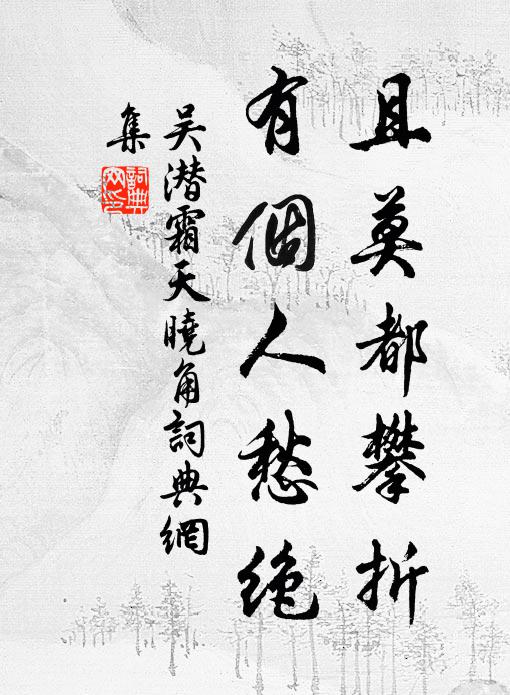 且莫都攀折
有個人愁绝
吴潜霜天曉角詞典網
集
詞典网印